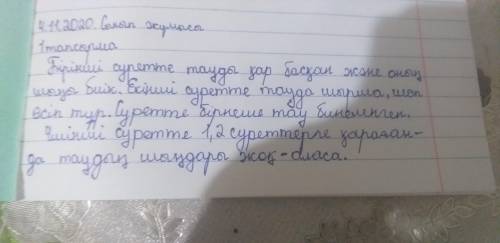 4.11.2020. Сынып жұмысы
1тапсырма
Бірінші суретте тауды қар басқан және оның
шыңы биік. Екінші суретте тауда шырша, шөп
өсіп тұр. Суретте бірнеше тау бинеленген.
Үшінші суретте 1,2 суреттерге қараған-
да таудың шыңдары жоқ-аласа.